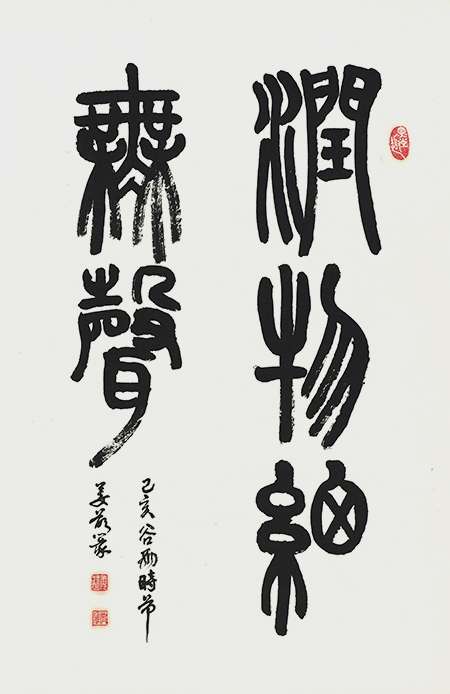 潤物細
無聲
己亥谷雨時節
姜